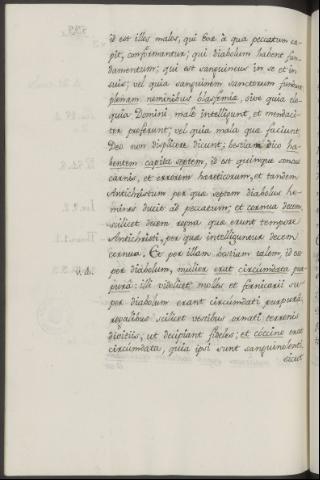 id est illos malos, qui hoc a qua peccatum ca-
pit, confirmantur; qui diabolum habent fun-
damentum; qui est sanguineus in se et in
suis; vel quia sanguinem sanctorum fundunt
plenam nominibus blasfemia, sive quia elo-
quia Domini male intelligunt, et mendaci-
ter proferunt; vel quia mala que faciunt
Deo non displicere dicunt; bestiam dico ha-
bentem capita septem, id est quinque sensus
carnis, et errorem hereticorum, et tandem
Antichristum per que septem diabolus ho-
mines ducit ad peccatum; et cornua decem,
scilicet decem regna que erunt tempore
Antichristi, per que intelliguntur decem
cornua. Et per illam bestiam talem, id est
per diabolum, mulier erat circumdata pur-
pura: illi videlicet molles et fornicarii
per diabolum erant circumdati purpura,
regalibus scilicet vestibus ornati terrenis
divitiis, ut decipiant fideles; et coccino erat
circumdata, quia ipsi sunt sanguinolenti
sicut